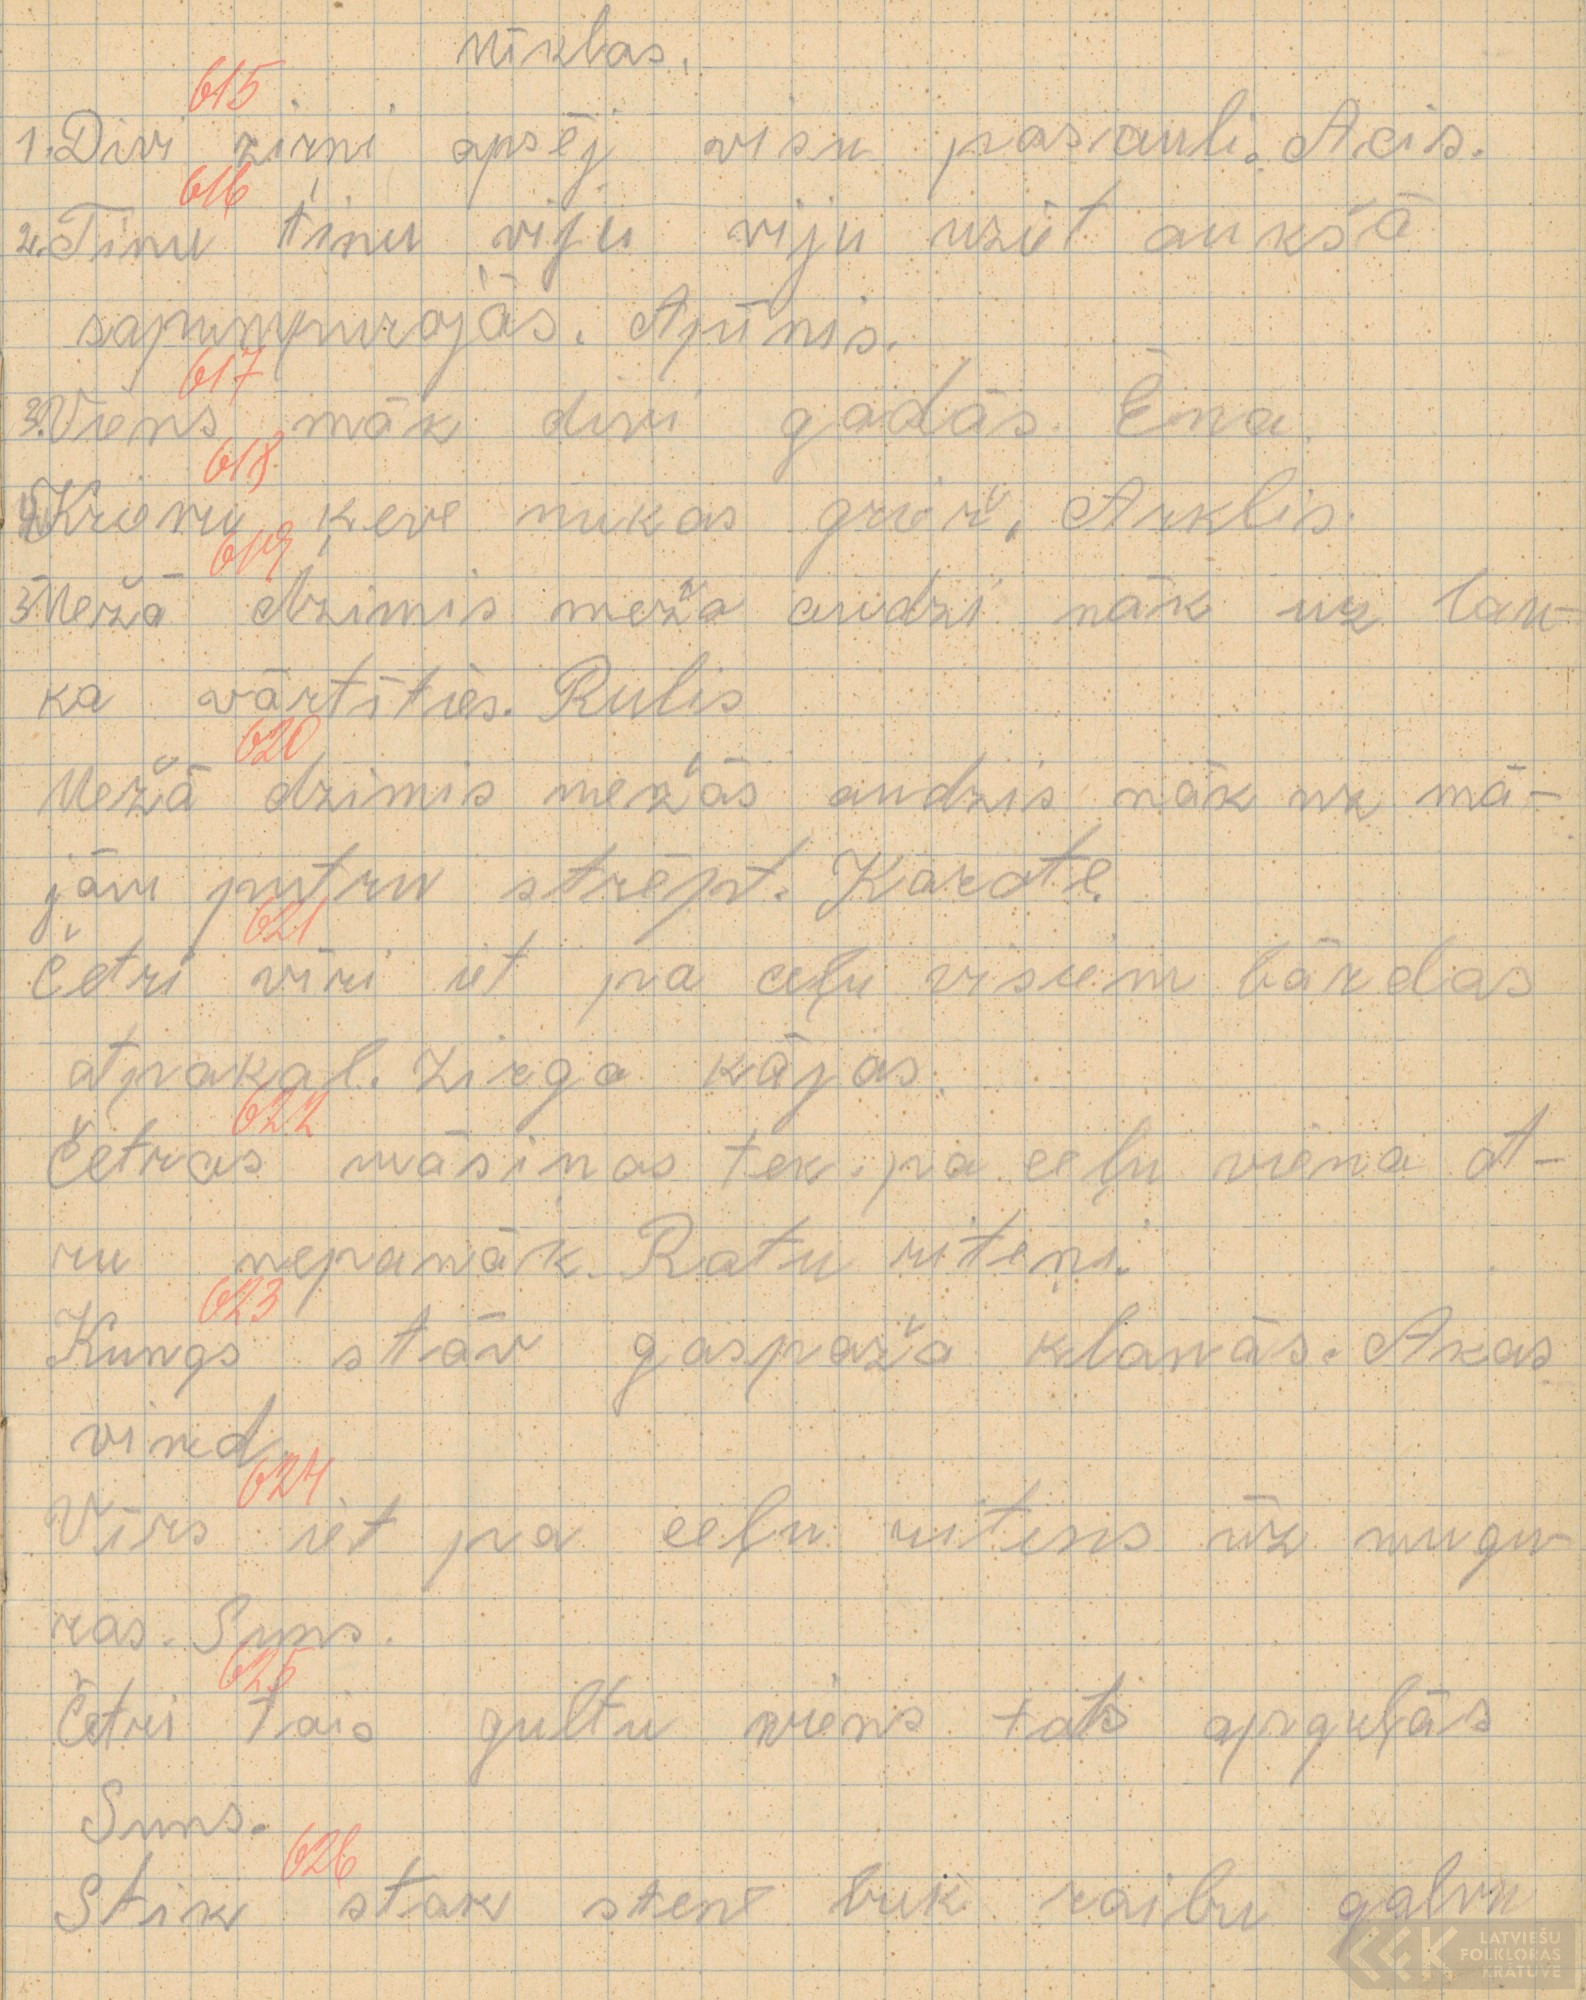 Mīklas.
615
1. Divi zirņi apsēj visu pasauli. Acis.
616
2. Tinu tinu viju viju uziet aukšā
sapumpurojās. Apīnis.
617
3. Viens māk divi gadās. Ēna.
618
4. Krievu ķeve mukas griež. Arklis.
619
5. Mežā dzimis meža audzi nāk uz lau-
ka vārtīties. Rulis
620
Mežā dzimis mežās audzis nāk uz mā-
jām putru strēpt. Karote.
621
Četri vīri iet pa ceļu visiem bārdas
atpakaļ. Zirga kājas.
622
Četras māsiņas tek pa ceļu viena ot-
ru nepanāk. Ratu riteņi.
623
Kungs stāv gaspaža klanās. Akas
vind
624
Vīrs iet pa ceļu ritens uz mugu-
ras. Suns.
625
Četri tais gultu viens tots apguļās
Suns.
626
Stik stak stene buk raibu galvu
LATVIEŠU
FOLKLORAS
KRĀTUVE